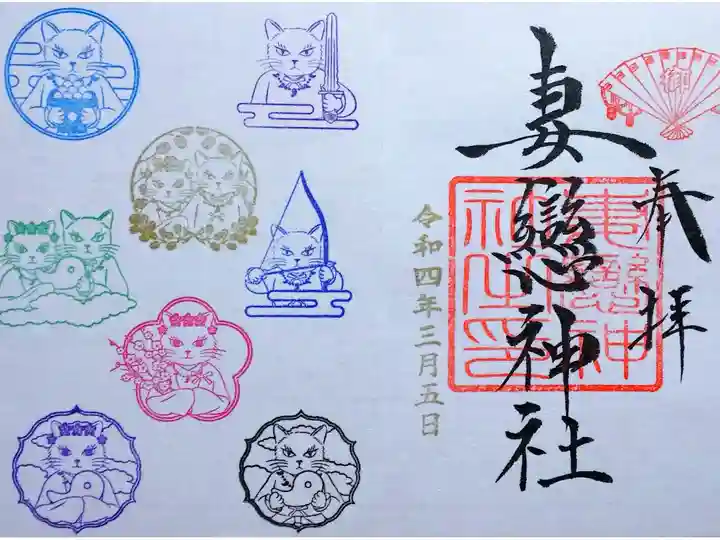 御
奉拝
妻戀神社
妻戀神社之印
令和四年三月五日